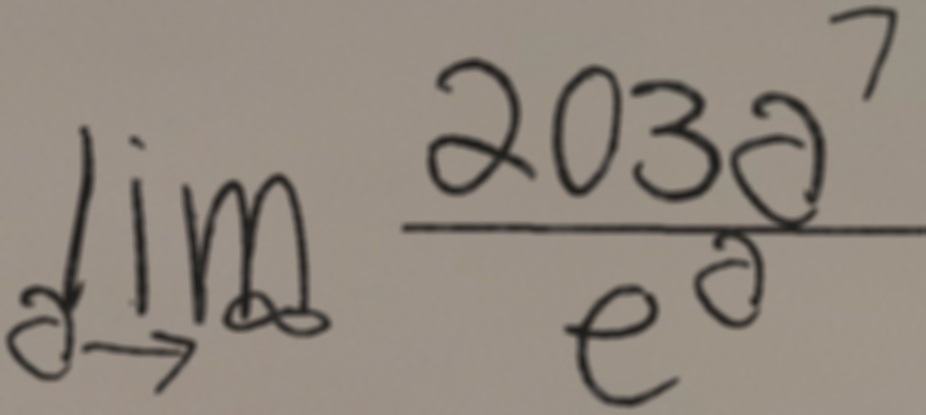 lim_{a→∞} \frac{203a^7}{e^a}